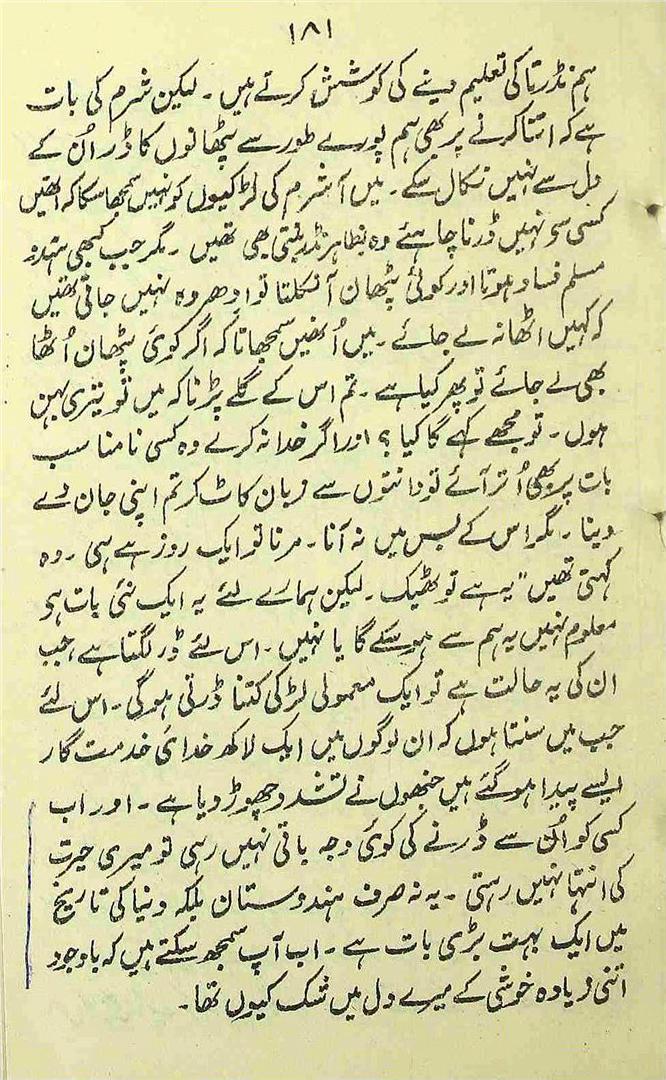 ۱۸۱
ہم نڈرتا کی تعلیم دینے کی کوشش کرتے ہیں ۔ لیکن شرم کی بات
ہے کہ اتنا کرنے پر بھی ہم پورے طور سے پٹھانوں کا ڈر اُن کے
دل سے نہیں نکال سکے ۔ میں آشرم کی لڑکیوں کو نہیں سمجھا سکا کہ انھیں
کسی سو نہیں ڈرنا چاہئے وہ بظاہر نڈر بنتی بھی تھیں ۔ مگر جب کبھی ہندو
مسلم فساد ہوتا اور کوئی پٹھان آنکلتا تو ادھر وہ نہیں جاتی تھیں
کہ کہیں اٹھا نہ لے جائے ۔ میں اُنھیں سمجھاتا کہ اگر کوئی پٹھان اُٹھا
بھی لے جائے تو پھر کیا ہے ۔ تم اس کے گلے پڑنا کہ میں تو تیری بہن
ہوں ۔ تو مجھے کہے گا کیا ؟ اور اگر خدا نہ کرے وہ کسی نامناسب
بات پر بھی اُتر آئے تو دانتوں سے زبان کاٹ کر تم اپنی جان دے
دینا ۔ مگر اس کے بس میں نہ آنا ۔ مرنا تو ایک روز ہے ہی ۔ وہ
کہتی تھیں " یہ ہے تو ٹھیک ۔ لیکن ہمارے لئے یہ ایک نئی بات ہو
معلوم نہیں یہ ہم سے ہو سکے گا یا نہیں ۔ اس لئے ڈر لگتا ہے ، جب
ان کی یہ حالت ہے تو ایک معمولی لڑکی کتنا ڈرتی ہوگی ۔ اس لئے
جب میں سنتا ہوں کہ ان لوگوں میں ایک لاکھ خدائی خدمت گار
ایسے پیدا ہو گئے ہیں جنھوں نے تشدد چھوڑ دیا ہے ۔ اور اب
کسی کو اُن سے ڈرنے کی کوئی وجہ باقی نہیں رہی تو میری حیرت
کی انتہا نہیں رہتی ۔ یہ نہ صرف ہندوستان بلکہ دنیا کی تاریخ
میں ایک بہت بڑی بات ہے ۔ اب آپ سمجھ سکتے ہیں کہ باوجود
اتنی زیادہ خوشی کے میرے دل میں شک کیوں تھا ۔